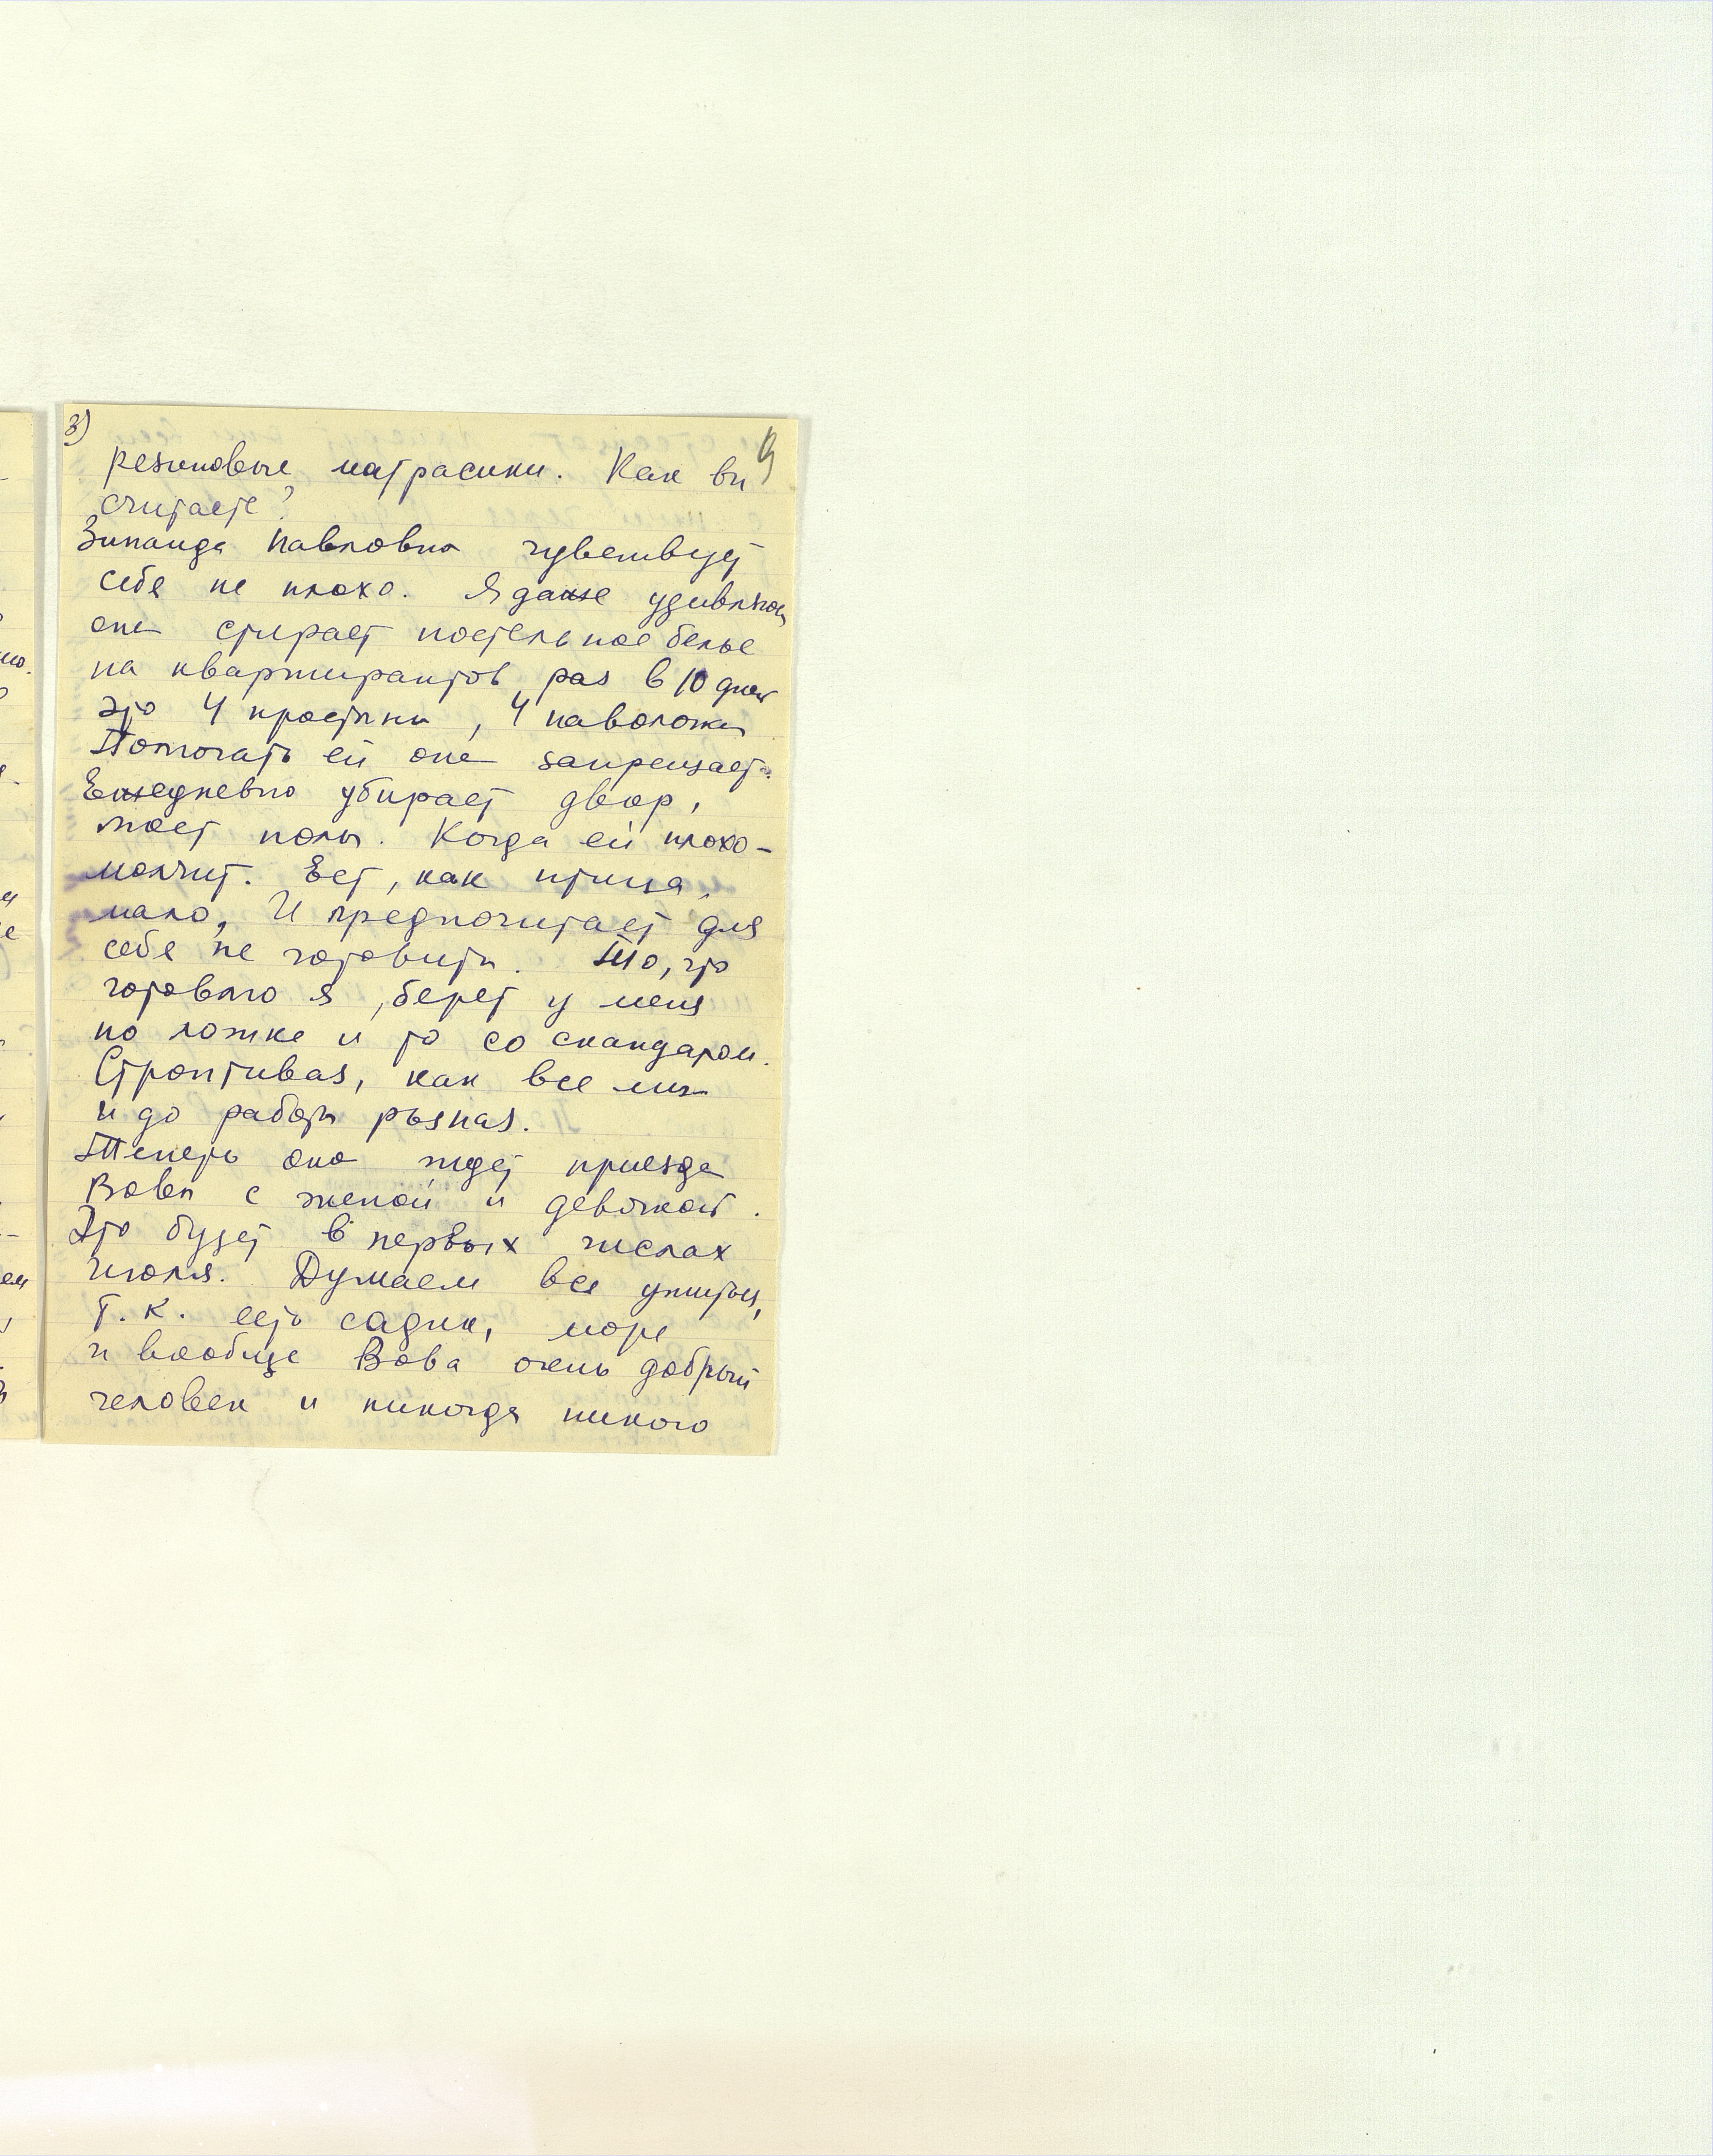 3)
9
резиновые матрасики. Как вы
считаете?
Зинаида Павловна чувствует
себя не плохо. Я даже удивляюсь
она стирает постельное белье
на квартирантов раз в 10 дней
это 4 простыни, 4 наволочки
Помогать ей она запрещает.
Ежедневно убирает двор,
моет полы. Когда ей плохо -
молчит. Ест, как птица,
мало, И предпочитает для
себя не готовить. То, что
готовлю я, берет у меня
по ложке и то со скандалом.
Строптивая, как все мы
и до работы рьяная.
Теперь она ждет приезда
Вовы с женой и девочкой.
Это будет в первых числах
июля. Думаем все ужиться,
т. к. есть садик, море
и вообще Вова очень добрый
человек и никогда никого